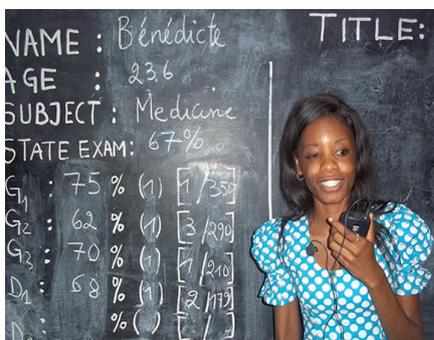 NAME : Bénédicte
TITLE:
AGE : 23,6
SUBJECT : Medicine
STATE EXAM: 67%
G1 : 75 % (1) [1/350]
G2 : 62 % (1) [3/290]
G3 : 70 % (1) [1/210]
D1 : 68 % (1) [2/179]
D2 : % ( ) [ / ]